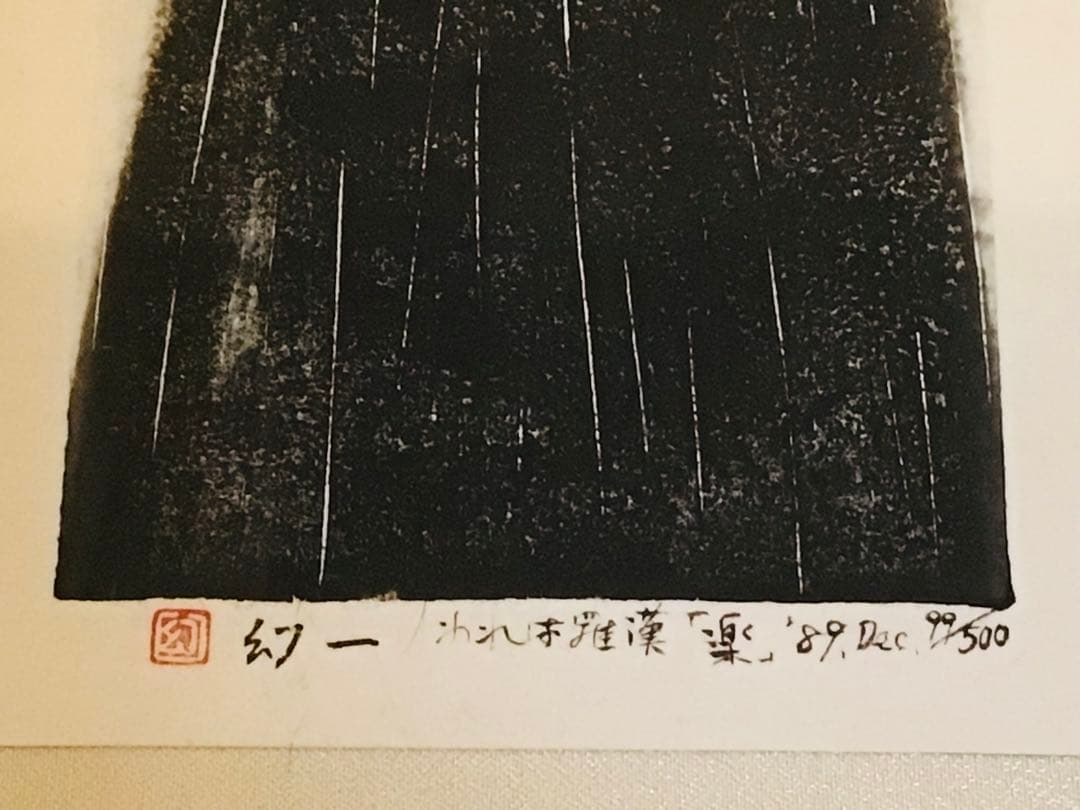 幻一 われは羅漢「楽」'89, Dec. 99/500